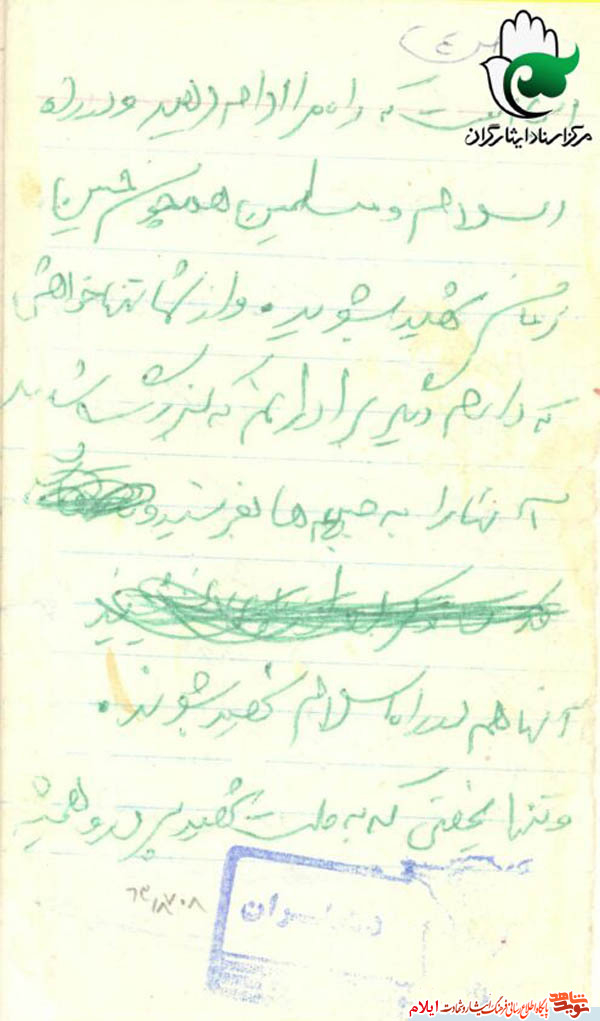 ص ٤
مرکز اسناد ایثارگران
این است که راه مرا ادامه دهید و در راه
اسلام و مسلمین همچون حسین
زمان شهید شوید. و از شما تنها خواهش
که دارم دیگر برادرانم که بزرگ شدند
آنها را به جبهه ها بفرستید و
آنها هم در راه اسلام شهید شوند.
و تنها نصیحتی که به ملت شهید پرور و همیشه
نوید شاهد پایگاه اطلاع رسانی فرهنگ ایثار و شهادت ایلام